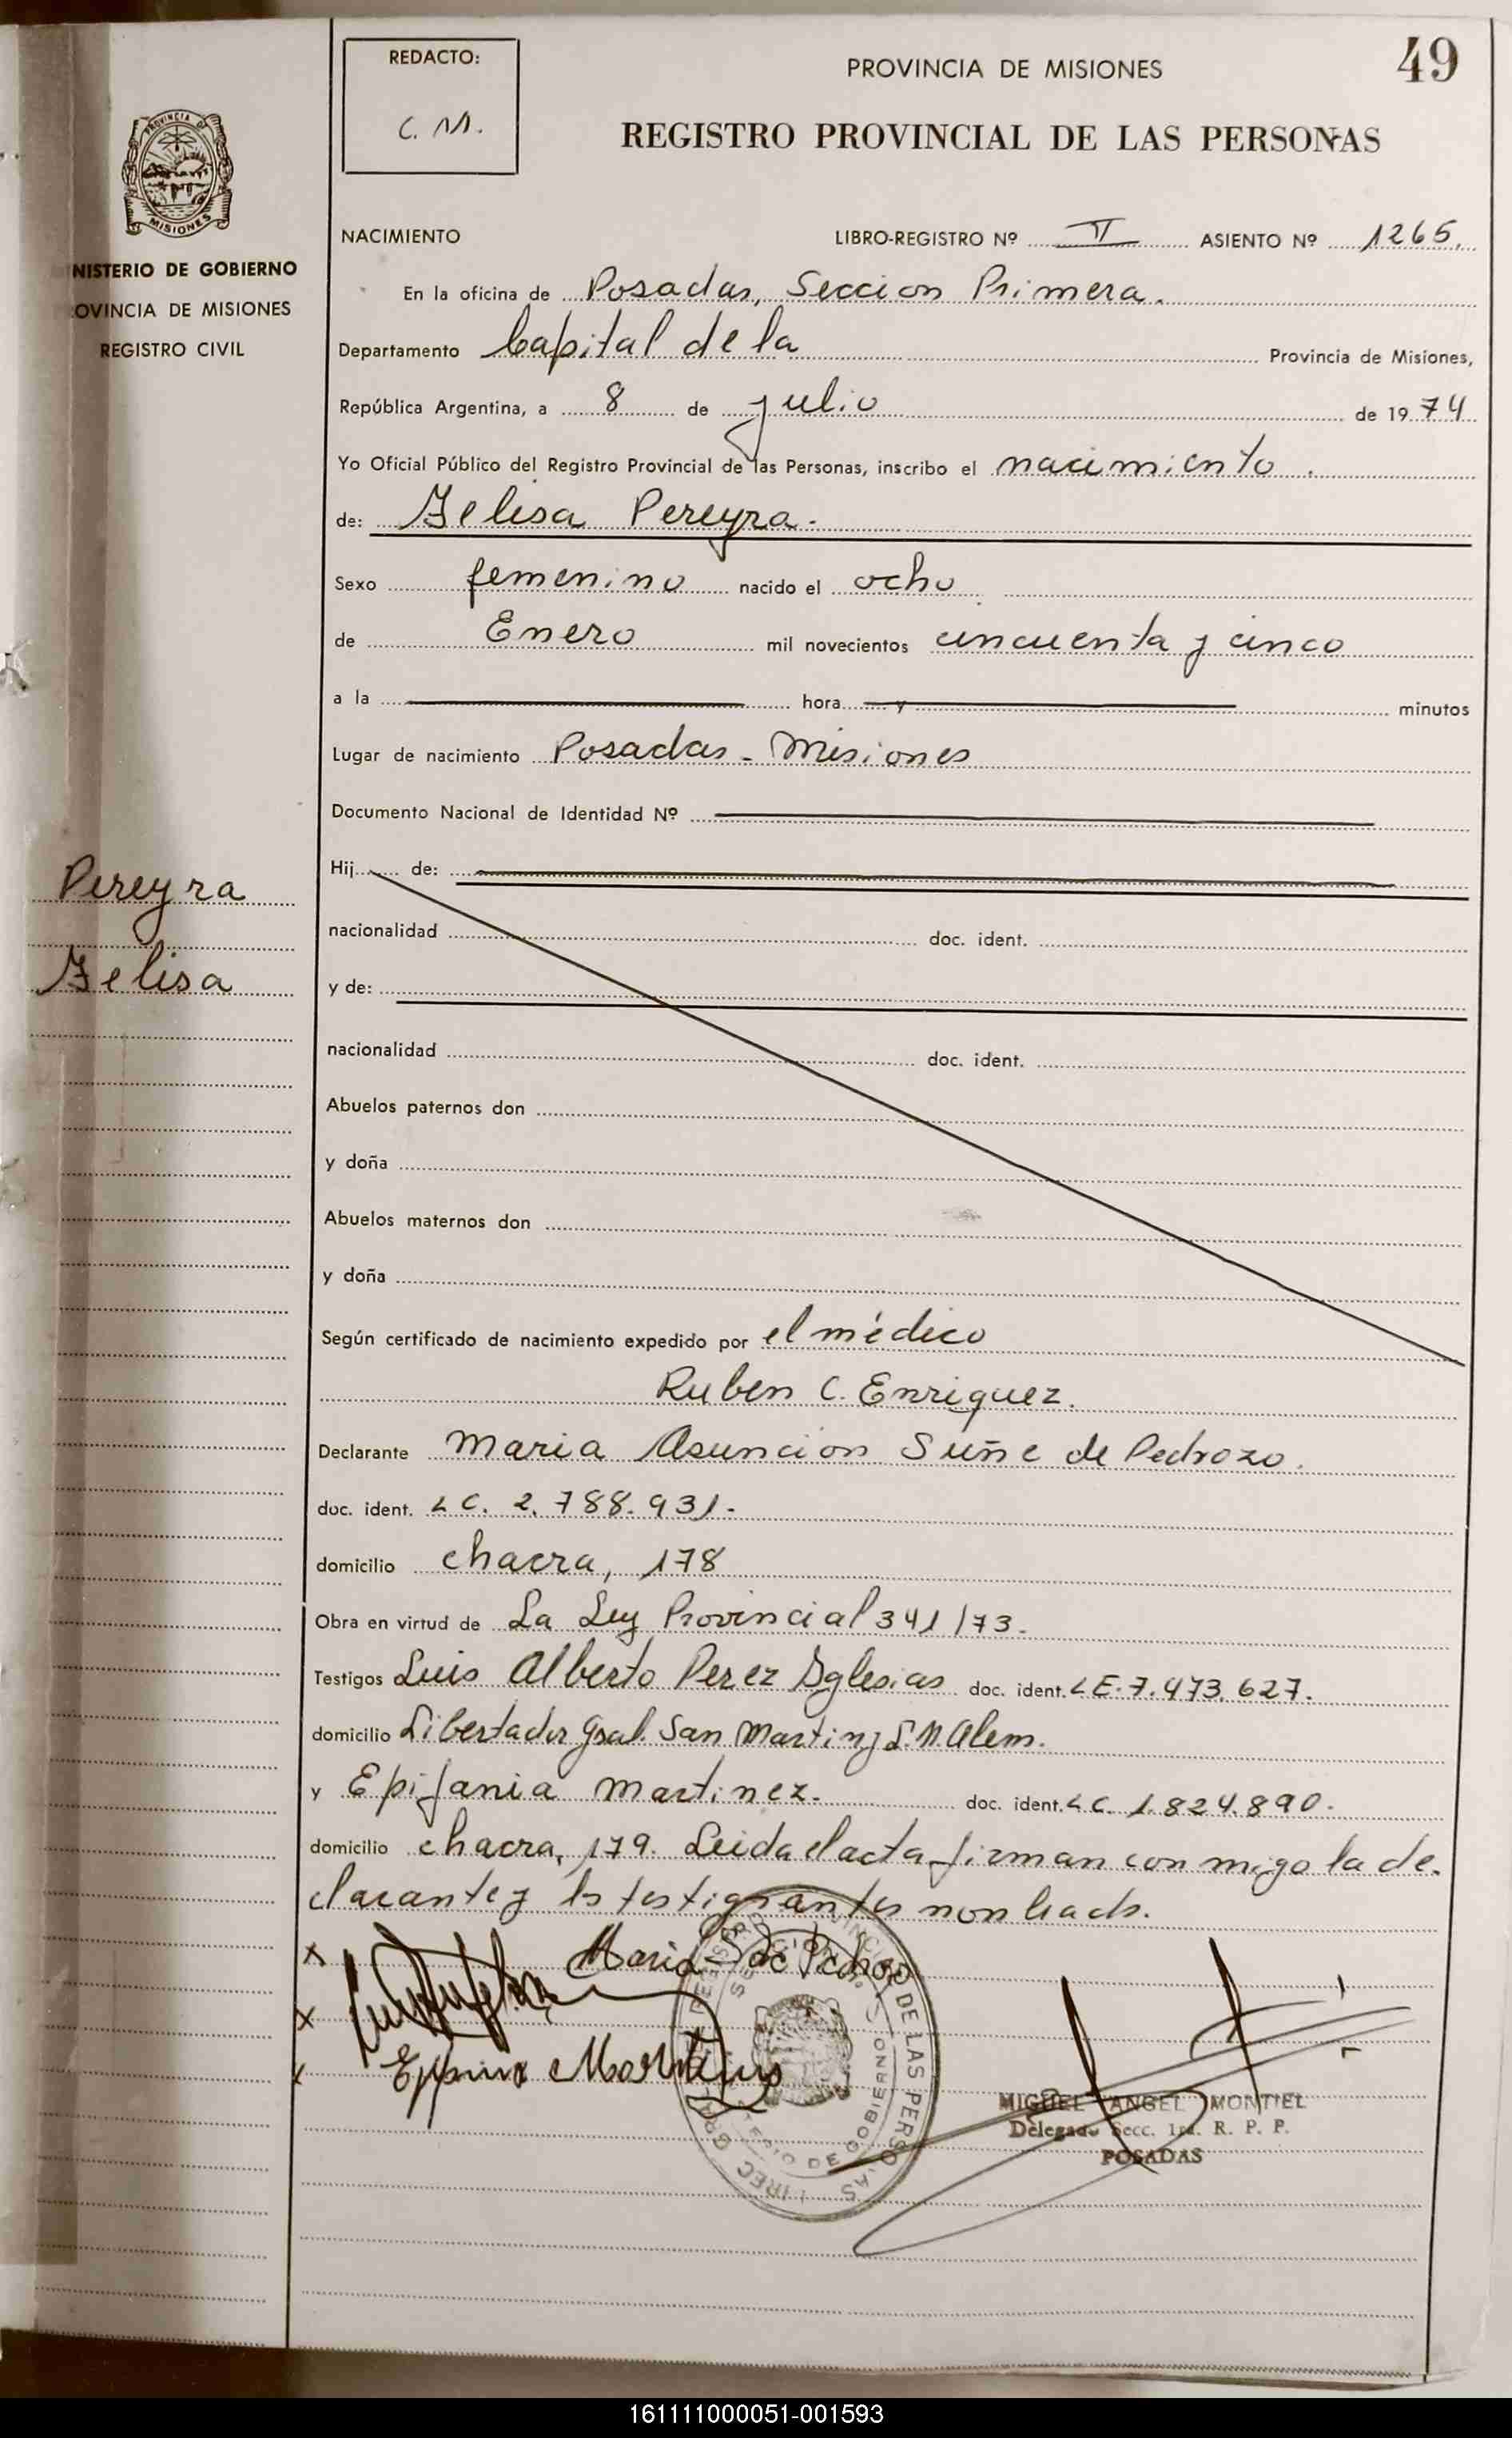 REDACTO:
C. M.
49
PROVINCIA DE MISIONES
REGISTRO PROVINCIAL DE LAS PERSONAS
PROVINCIA DE
MISIONES
NISTERIO DE GOBIERNO
OVINCIA DE MISIONES
REGISTRO CIVIL
NACIMIENTO LIBRO-REGISTRO Nº II ASIENTO Nº 1265.
En la oficina de Posadas, Seccion Primera.
Departamento Capital de la Provincia de Misiones,
República Argentina, a 8 de julio de 1974
Yo Oficial Público del Registro Provincial de las Personas, inscribo el nacimiento.
de: Felisa Pereyra.
Sexo femenino nacido el ocho
de Enero mil novecientos cincuenta y cinco
a la hora y minutos
Lugar de nacimiento Posadas - Misiones
Documento Nacional de Identidad Nº
Pereyra
Felisa
Hij de:
nacionalidad doc. ident.
y de:
nacionalidad doc. ident.
Abuelos paternos don
y doña
Abuelos maternos don
y doña
Según certificado de nacimiento expedido por el médico
Ruben C. Enriquez.
Declarante Maria Asuncion Suñe de Pedrozo.
doc. ident. LC. 2.788.931.
domicilio chacra, 178
Obra en virtud de La Ley Provincial 341/73.
Testigos Luis Alberto Perez Iglesias doc. ident. LE. 7.473.627.
domicilio Libertador Gral. San Martin y L.N. Alem.
y Epifania Martinez. doc. ident. LC. 1.824.890.
domicilio chacra, 179. Leida el acta firman con migo la de-
clarante y los testigos antes nombrados.
Maria S de Pedrozo
MIGUEL ANGEL MONTIEL
Delegado Secc. 1ra. R. P. P.
POSADAS
161111000051-001593